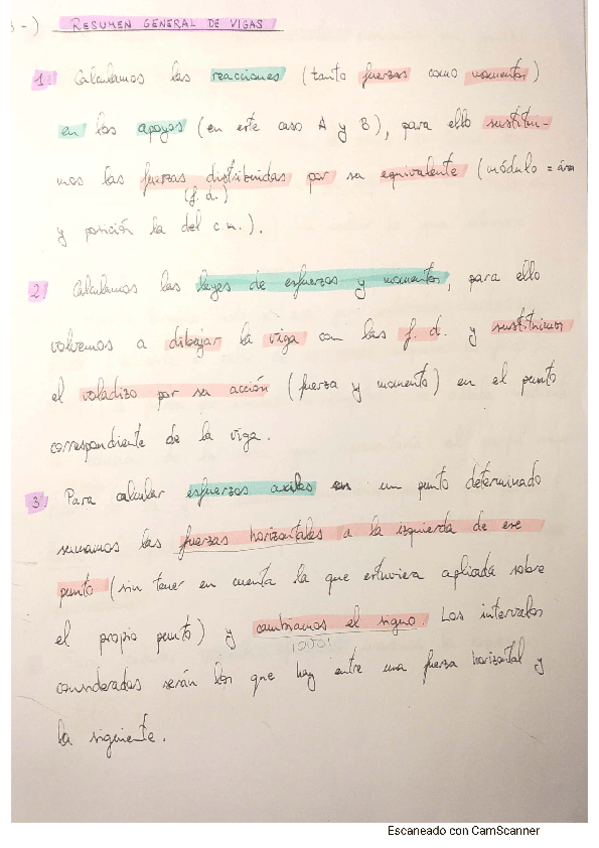 3-) RESUMEN GENERAL DE VIGAS
1. Calculamos las reacciones (tanto fuerzas como momentos)
en los apoyos (en este caso A y B), para ello sustitui-
mos las fuerzas distribuidas por su equivalente (módulo = área
(f. d.)
y posición la del c.m.).
2 Calculamos las leyes de esfuerzos y momentos, para ello
volvemos a dibujar la viga con las f. d. y sustituimos
el voladizo por su acción (fuerza y momento) en el punto
correspondiente de la viga.
3. Para calcular esfuerzos axiles en un punto determinado
sumamos las fuerzas horizontales a la izquierda de ese
punto (sin tener en cuenta la que estuviera aplicada sobre
el propio punto) y cambiamos el signo. Los intervalos
considerados serán los que hay entre una fuerza horizontal y
la siguiente.
Escaneado con CamScanner